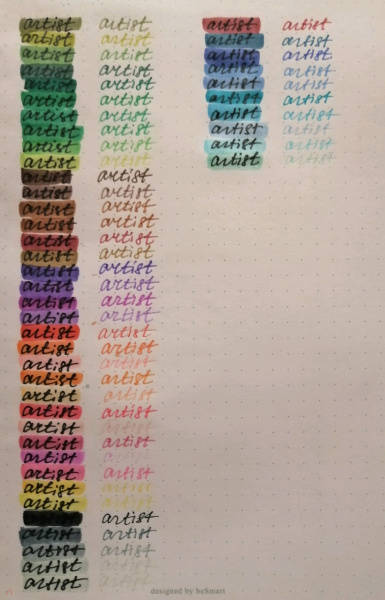 artist artist
artist artist
artist artist
artist artist
artist artist
artist artist
artist artist
artist artist
artist artist
artist artist
artist artist
artist artist
artist artist
artist artist
artist artist
artist artist
artist artist
artist artist
artist artist
artist artist
artist artist
artist artist
artist artist
artist artist
artist artist
artist artist
artist artist
artist artist
artist artist
artist artist
artist artist
artist artist
artist
artist artist
artist artist
artist artist
artist artist
artist artist
artist artist
artist artist
artist artist
artist artist
artist artist
artist artist
artist artist
artist artist
artist artist
designed by beSmart